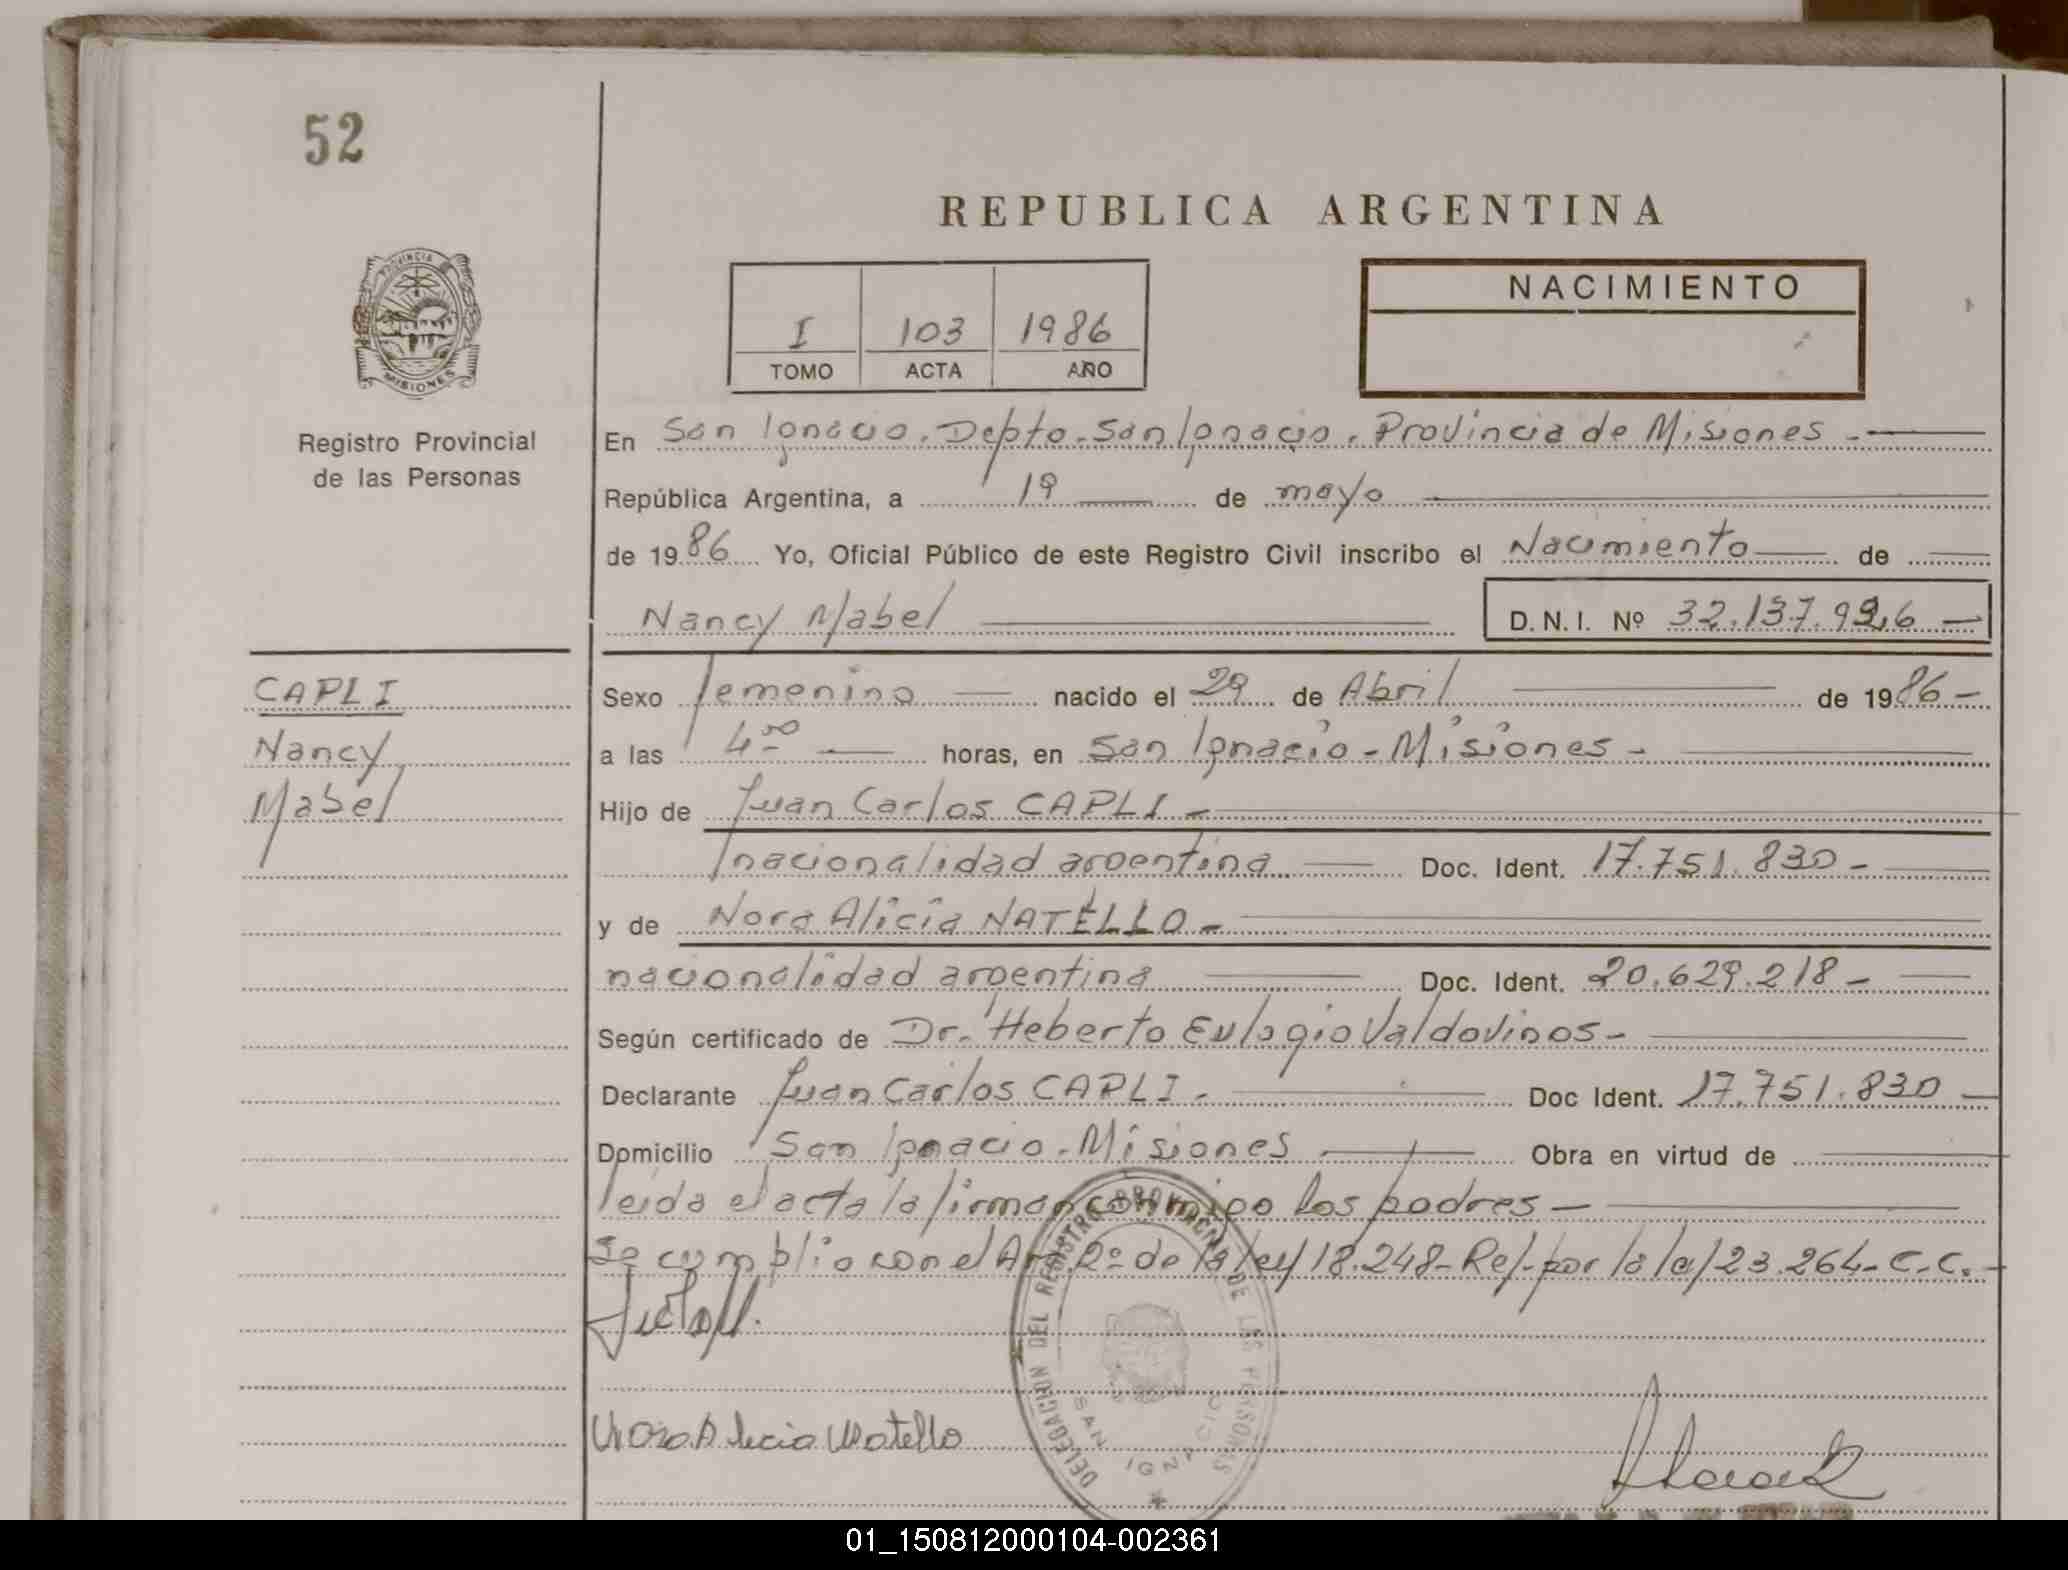 52
REPUBLICA ARGENTINA
PROVINCIA
MISIONES
I 103 1986
TOMO ACTA AÑO
NACIMIENTO
Registro Provincial
de las Personas
En San Ignacio. Depto. San Ignacio. Provincia de Misiones -
República Argentina, a 19 de mayo
de 1986 Yo, Oficial Público de este Registro Civil inscribo el Nacimiento de
Nancy Mabel D.N.I. Nº 32.137.926 -
CAPLI
Nancy
Mabel
Sexo femenino nacido el 29 de Abril de 1986 -
a las 4 00 horas, en San Ignacio - Misiones -
Hijo de Juan Carlos CAPLI -
nacionalidad argentina Doc. Ident. 17.751.830 -
y de Nora Alicia NATELLO -
nacionalidad argentina Doc. Ident. 20.629.218 -
Según certificado de Dr. Heberto Eulogio Valdovinos -
Declarante Juan Carlos CAPLI - Doc Ident. 17.751.830 -
Domicilio San Ignacio - Misiones Obra en virtud de
leida el acta la firman conmigo los padres -
Se cumplio con el Art. 2º de la ley 18.248 - Ref. por la ley 23.264 - C.C. -
Nora Alicia Natello
DELEGACION DEL REGISTRO PROVINCIAL DE LAS PERSONAS
SAN IGNACIO
01_150812000104-002361